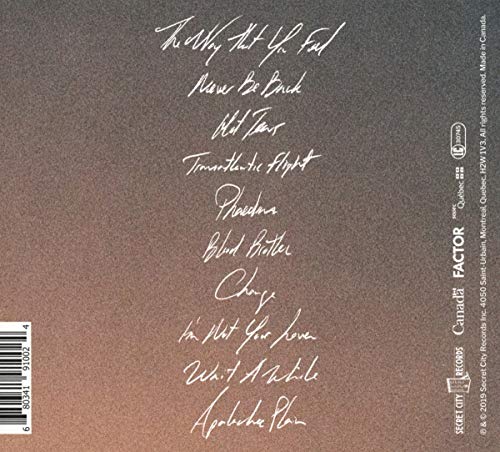 The Way That You Feel
Never Be Back
Hot Tears
Transatlantic Flight
Phaedra
Blood Brother
Change
I'm Not Your Lover
Wait A While
Apalachee Plain
6 80341 91002 4
SECRET CITY RECORDS
Canada
FACTOR
SODEC
Québec
LC 30745
℗ & © 2019 Secret City Records Inc. 4050 Saint-Urbain, Montreal, Quebec, H2W 1V3. All rights reserved. Made in Canada.